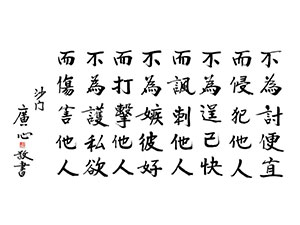 不為討便宜
而侵犯他人
不為逞己快
而諷刺他人
不為嫉彼好
而打擊他人
不為護私欲
而傷害他人
沙门
廣心敬書